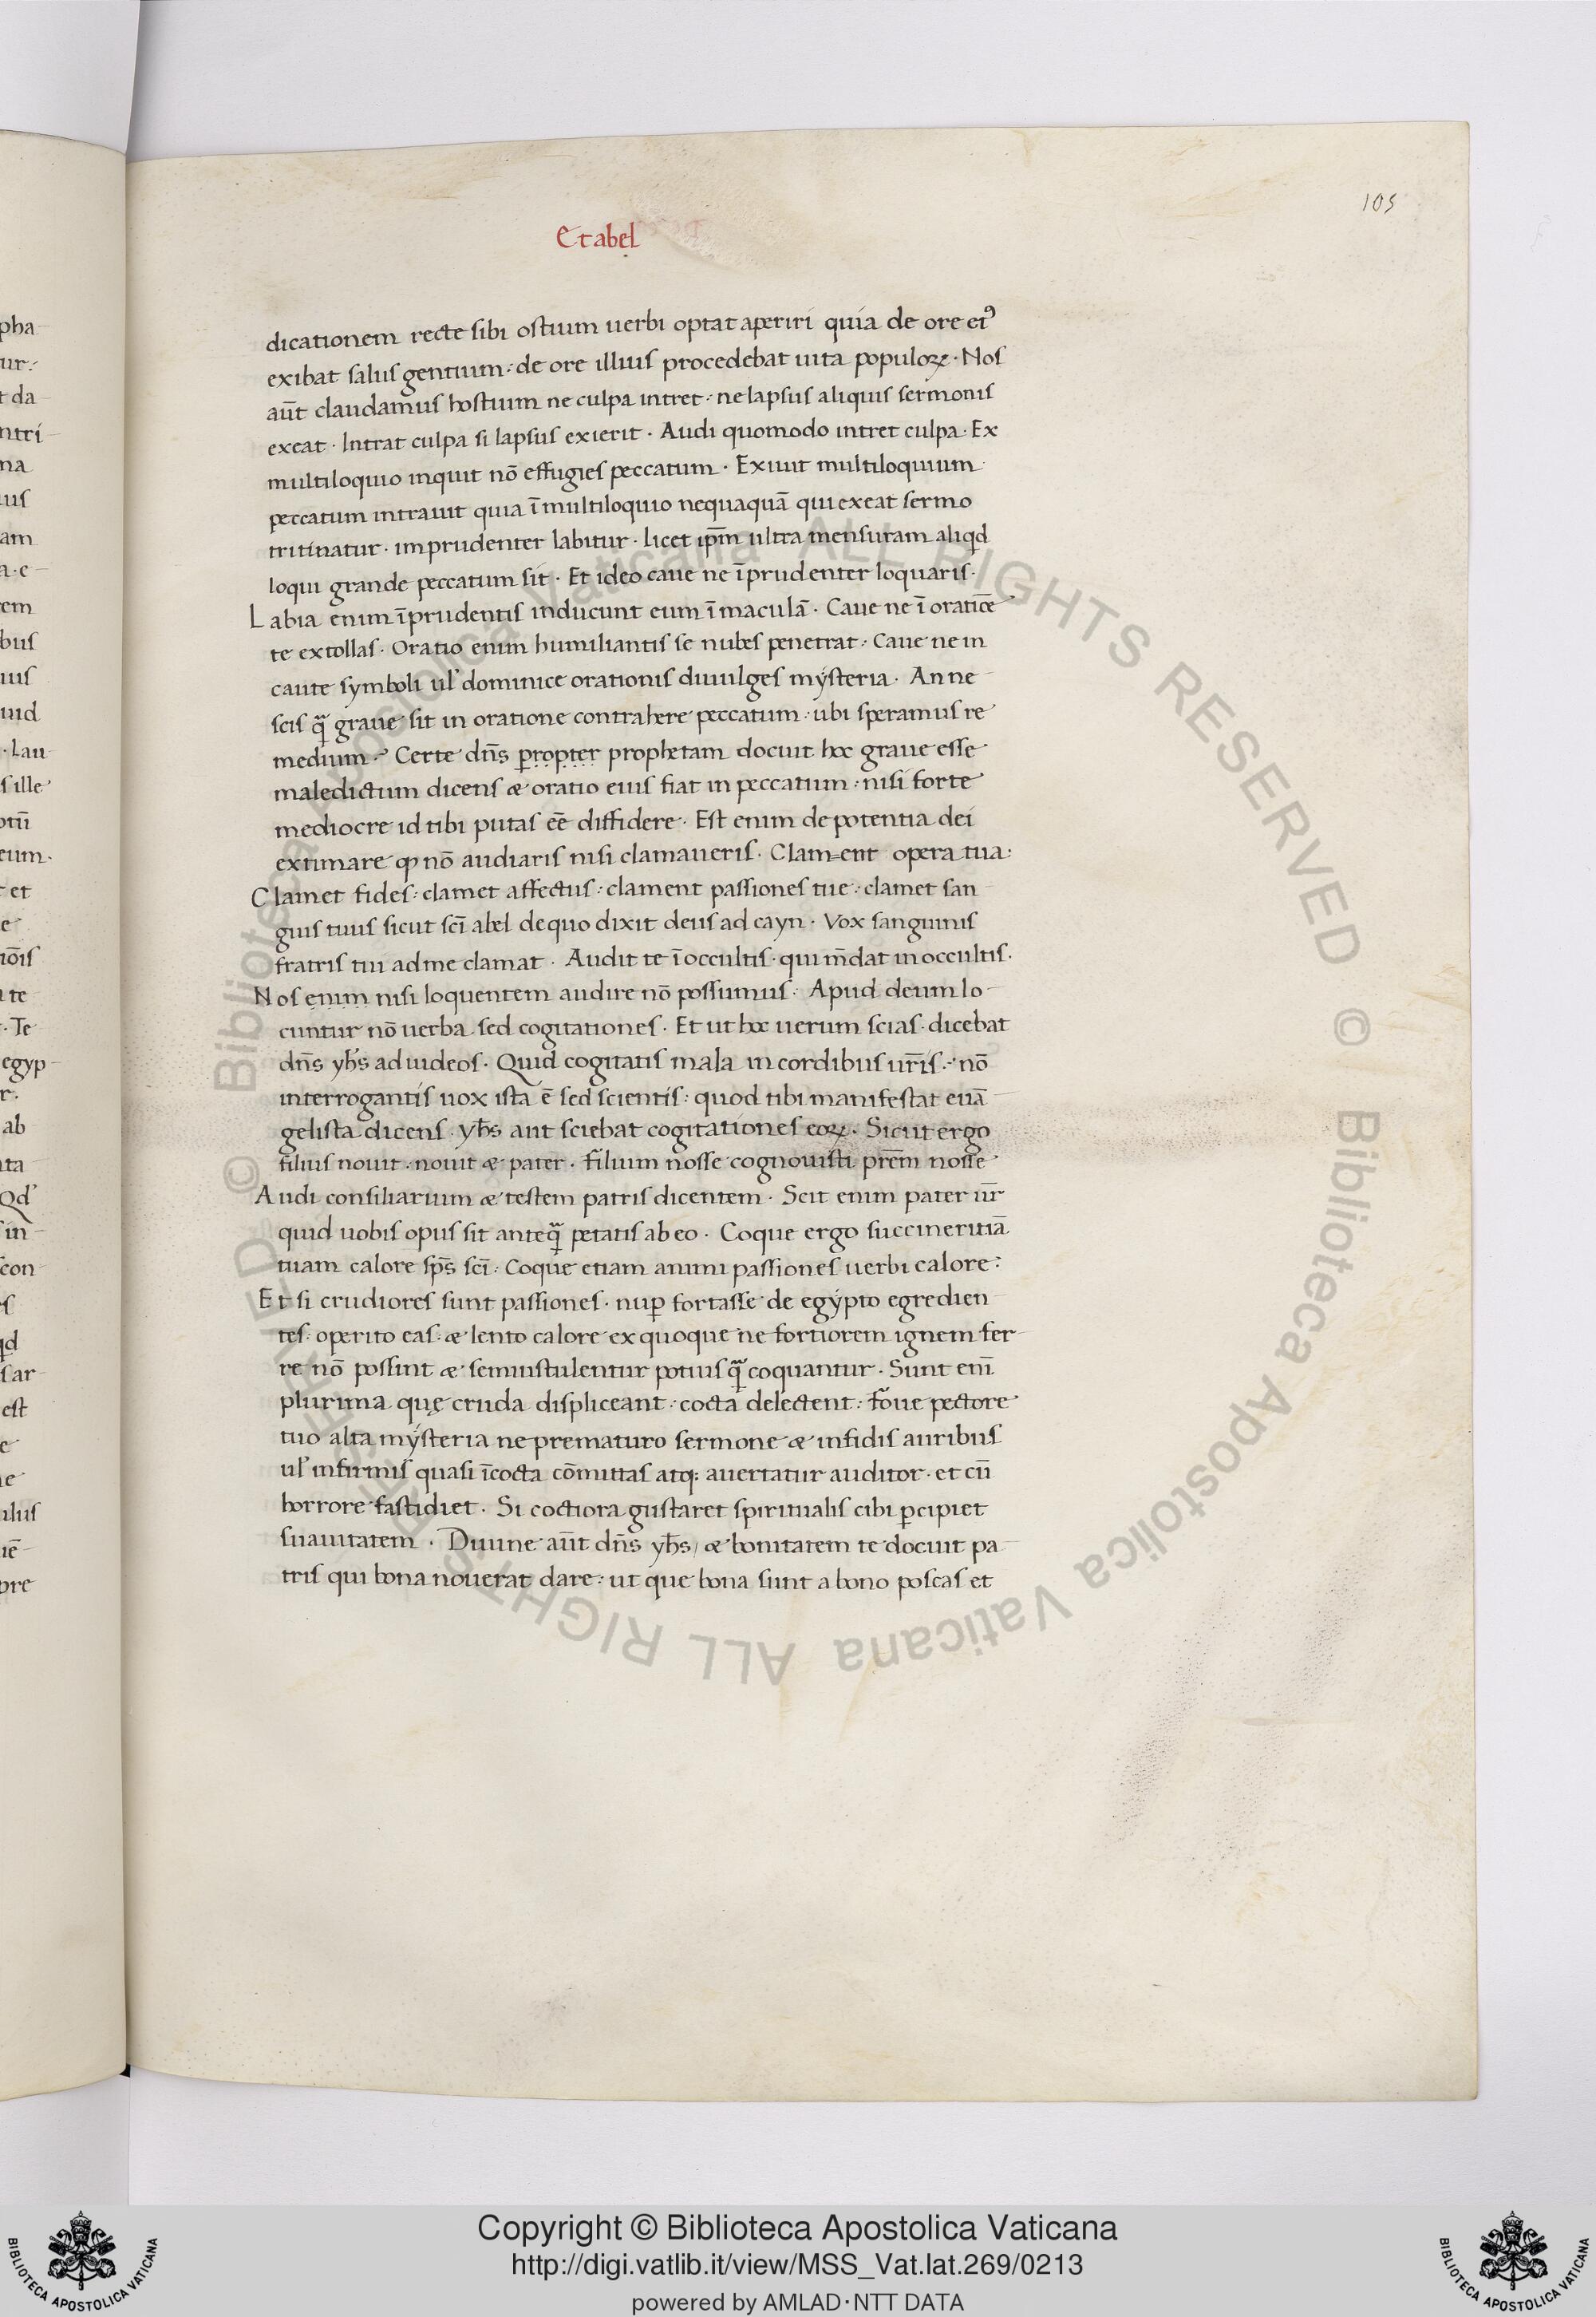 105
Et abel
dicationem recte sibi ostium uerbi optat aperiri quia de ore eiꝰ
exibat salus gentium : de ore illius procedebat uita populoꝝ · Nos
aūt claudamus hostium ne culpa intret : ne lapsus aliquis sermonis
exeat · Intrat culpa si lapsus exierit · Audi quomodo intret culpa · Ex
multiloquio inquit nō effugies peccatum · Exiuit multiloquium
peccatum intrauit quia ī multiloquio nequaquā qui exeat sermo
tritinatur · imprudenter labitur · licet ip̄m ultra mensuram aliqd
loqui grande peccatum sit · Et ideo caue ne īprudenter loquaris ·
Labia enim īprudentis inducunt eum ī maculā · Caue ne ī oratiōe
te extollas · Oratio enim humiliantis se nubes penetrat : Caue ne in
caute symboli ul' dominice orationis diuulges mysteria · An ne
scis q̄ graue sit in oratione contrahere peccatum : ubi speramus re
medium · Certe dn̄s ꝓpropter prophetam docuit hoc graue esse
maledictum dicens & oratio eius fiat in peccatum : nisi forte
mediocre id tibi putas eē diffidere · Est enim de potentia dei
extimare ꝙ nō audiaris nisi clamaueris · Clam=ent opera tua :
Clamet fides : clamet affectus : clament passiones tue : clamet san
guis tuus sicut sc̄i abel de quo dixit deus ad cayn · Vox sanguinis
fratris tui ad me clamat · Audit te ī occultis · qui m̄dat in occultis ·
Nos enim nisi loquentem audire nō possumus · Apud deum lo
cuntur nō uerba sed cogitationes · Et ut hoc uerum scias · dicebat
dn̄s yh̄s ad iudeos · Quid cogitatis mala in cordibus ur̄is : nō
interrogantis uox ista ē sed scientis : quod tibi manifestat euā
gelista dicens · yh̄s aut sciebat cogitationes eoꝝ · Sicut ergo
filius nouit · nouit & pater · filium nosse cognouisti pr̄em nosse
Audi consiliarium & testem patris dicentem · Scit enim pater ur̄
quid uobis opus sit anteq̄ petatis ab eo · Coque ergo succineritiā
tuam calore sp̄s sc̄i : Coque etiam animi passiones uerbi calore :
Et si crudiores sunt passiones · nup̄ fortasse de egypto egredien
tes : operito eas : & lento calore ex quoque ne fortiorem ignem fer
re nō possint & semiustulentur potius q̄ coquantur · Sunt eni̅
plurima quę cruda displiceant : cocta delectent : foue pectore
tuo alta mysteria ne prematuro sermone & infidis auribus
ul' infirmis quasi īcocta cōmittas atq; auertatur auditor · et cū
horrore fastidiet · Si coctiora gustaret spiritualis cibi ꝑcipiet
suauitatem · Diuine aūt dn̄s yh̄s / & bonitatem te docuit pa
tris qui bona nouerat dare : ut que bona sunt a bono poscas et
Copyright © Biblioteca Apostolica Vaticana
http://digi.vatlib.it/view/MSS_Vat.lat.269/0213
powered by AMLAD·NTT DATA
BIBLIOTECA APOSTOLICA VATICANA
BIBLIOTECA APOSTOLICA VATICANA
© Biblioteca Apostolica Vaticana ALL RIGHTS RESERVED © Biblioteca Apostolica Vaticana ALL RIGHTS RESERVED